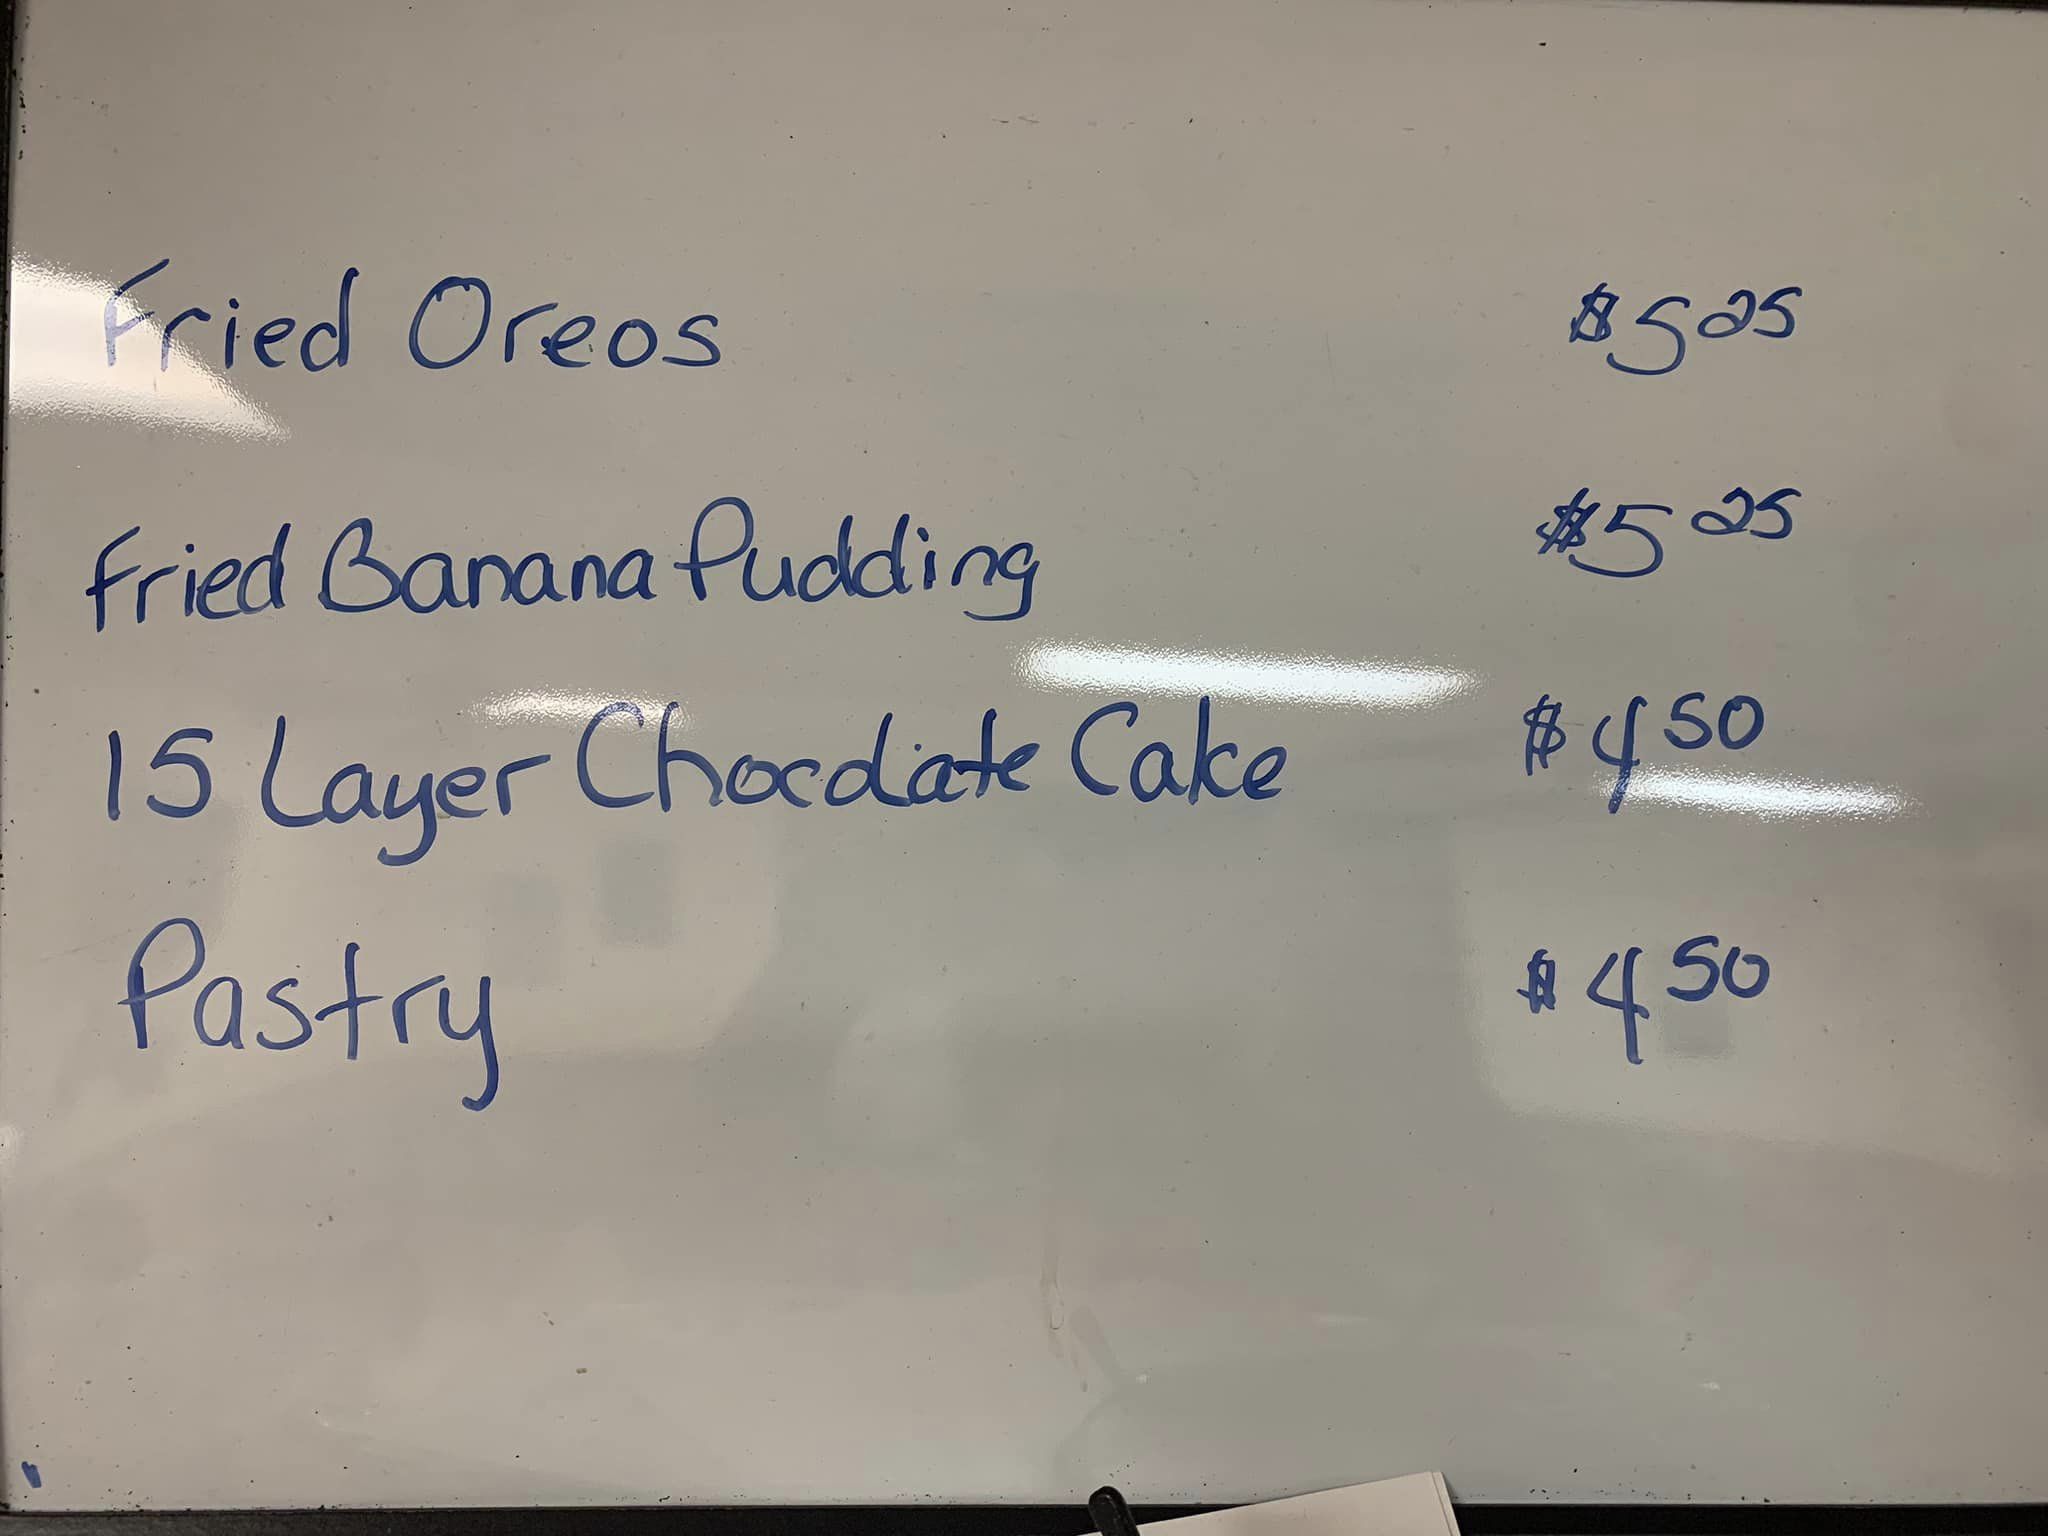 Fried Oreos $5.25
Fried Banana Pudding $5.25
15 Layer Chocolate Cake $4.50
Pastry $4.50